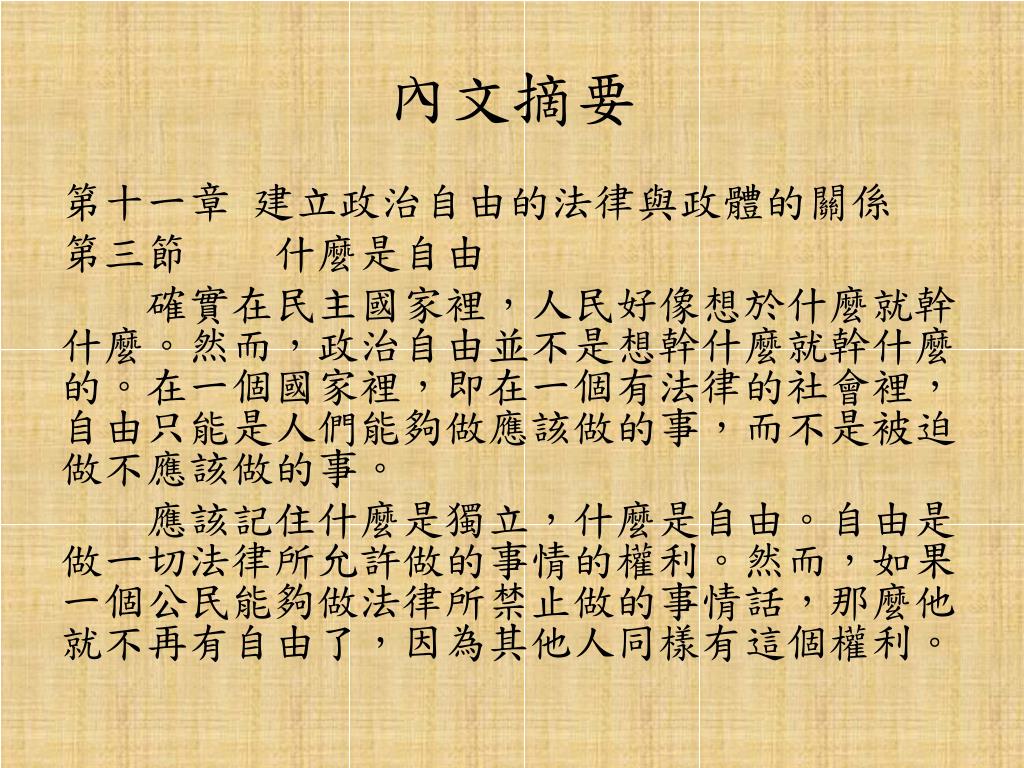 內文摘要
第十一章 建立政治自由的法律與政體的關係
第三節　　什麼是自由
確實在民主國家裡，人民好像想於什麼就幹
什麼。然而，政治自由並不是想幹什麼就幹什麼
的。在一個國家裡，即在一個有法律的社會裡，
自由只能是人們能夠做應該做的事，而不是被迫
做不應該做的事。
應該記住什麼是獨立，什麼是自由。自由是
做一切法律所允許做的事情的權利。然而，如果
一個公民能夠做法律所禁止做的事情話，那麼他
就不再有自由了，因為其他人同樣有這個權利。